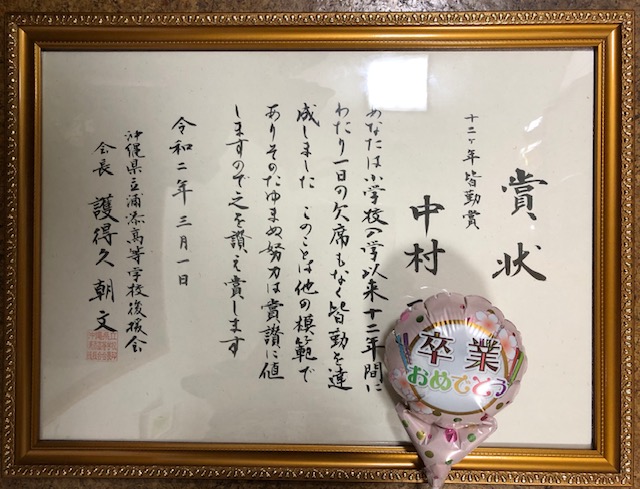 賞状
十二ヶ年皆勤賞
中村
あなたは小学校入学以来十二年間に
わたり一日の欠席もなく皆勤を達
成しました このことは他の模範で
ありそのたゆまぬ努力は賞讃に値
しますので之を讃え賞します
令和二年三月一日
沖縄県立浦添高等学校後援会
会長 護得久朝文
卒業
おめでとう